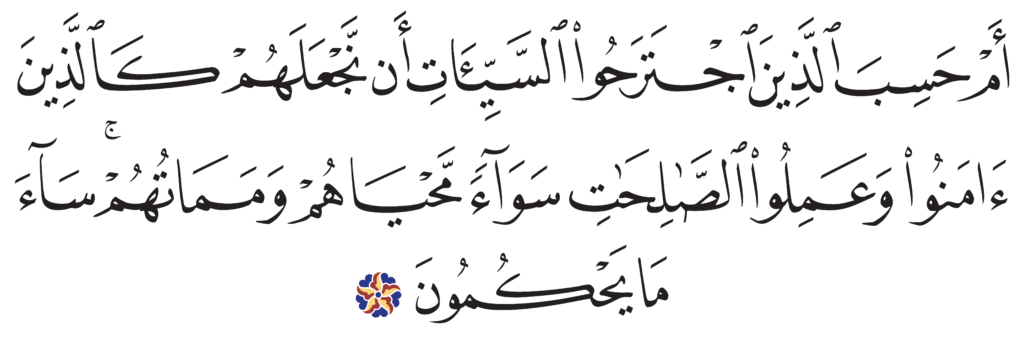 أَمْ حَسِبَ ٱلَّذِينَ ٱجْتَرَحُوا۟ ٱلسَّيِّـَٔاتِ أَن نَّجْعَلَهُمْ كَٱلَّذِينَ
ءَامَنُوا۟ وَعَمِلُوا۟ ٱلصَّـٰلِحَـٰتِ سَوَآءًۭ مَّحْيَاهُمْ وَمَمَاتُهُمْ ۚ سَآءَ
مَا يَحْكُمُونَ